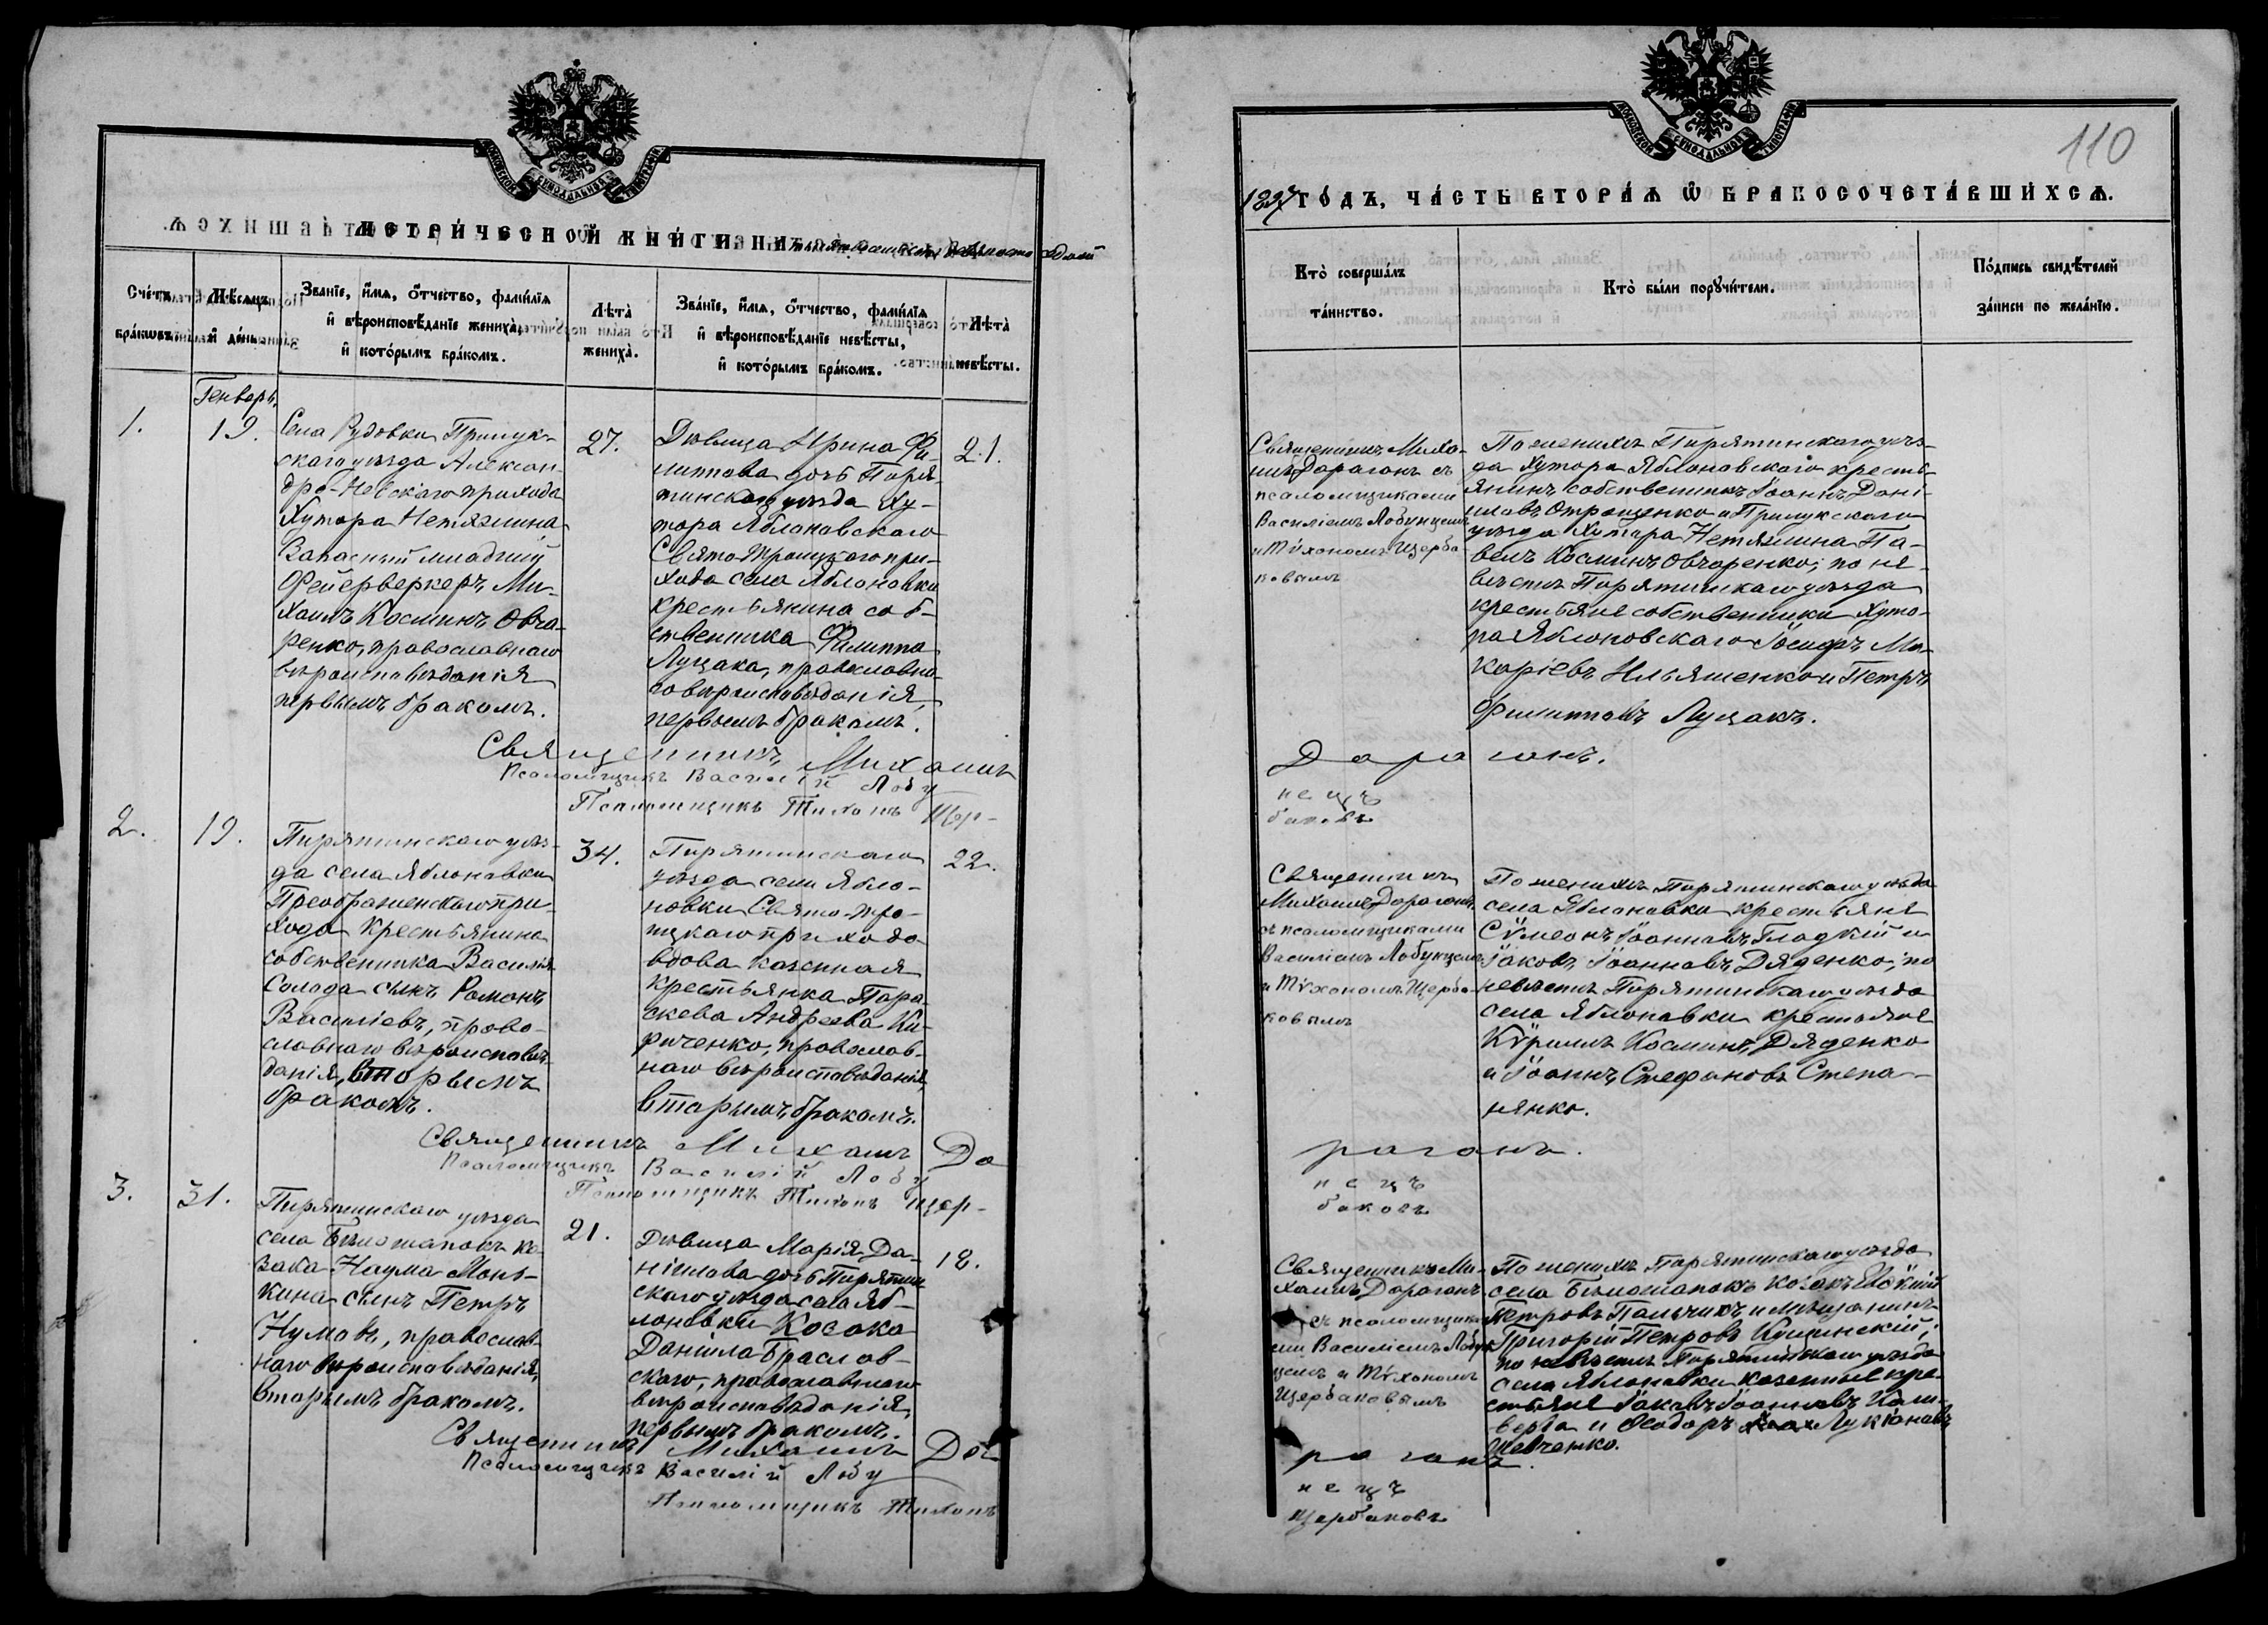 МЕТРИ́ЧЕСКОЙ КНИ́ГИ НА
Сче́тъ бра́ковъ.
Мѣ́сяцъ и де́нь.
Зва́нїе, и́мѧ, ѻ҆́тчество, фами́лїѧ
и҆ вѣроисповѣ́данїе жениха̀,
и҆ кото́рымъ бра́комъ.
Лѣта̀
жениха̀.
Зва́нїе, и́мѧ, ѻ҆́тчество, фами́лїѧ
и҆ вѣроисповѣ́данїе невѣ́сты,
и҆ кото́рымъ бра́комъ.
Лѣта̀
невѣ́сты.
Генварь.
1.
19.
Села Рудовки Прилук-
скаго уѣзда Алексан-
дро-Невскаго прихода
Хутора Нетяжина
Запасный младшій
Фейерверкеръ Ми-
хаилъ Косминъ Овча-
ренко, православнаго
вѣроисповѣданія
первымъ бракомъ.
27.
Дѣвица Ирина Фи-
липпова дочь Пиря-
тинскаго уѣзда Ху-
тора Яблоновскаго
Свято-Троицкаго при-
хода села Яблоновки
крестьянина соб-
ственника Филиппа
Луцака, православна-
го вѣроисповѣданія,
первымъ бракомъ.
21.
Священникъ Михаилъ
Псаломщикъ Василій Лобу
Псаломщикъ Тихонъ Щер-
2.
19.
Пирятинскаго уѣз-
да села Яблоновки
Преображенскаго при-
хода крестьянина
собственника Василія
Солода сынъ Романъ
Василіевъ, право-
славнаго вѣроисповѣ-
данія, вторымъ
бракомъ.
34.
Пирятинскаго
уѣзда села Ябло-
новки Свято-Тро-
ицкаго прихода
вдова казенная
крестьянка Пара-
скева Андреева Ки-
риченко, православ-
наго вѣроисповѣданія
вторымъ бракомъ.
22.
Священникъ Михаилъ До
Псаломщикъ Василій Лобу
Псаломщикъ Тихонъ Щер-
3.
31.
Пирятинскаго уѣзда
села Бѣлошапокъ ка-
зака Наума Монь-
кина сынъ Петръ
Нумовъ, православ-
наго вѣроисповѣданія,
вторымъ бракомъ.
21.
Дѣвица Марія Да-
ніилова дочь Пирятин
скаго уѣзда села Яб-
лоновки Козака
Даніила Браслав-
скаго, православнаго
вѣроисповѣданія,
первымъ бракомъ.
18.
Священникъ Михаилъ До
Псаломщикъ Василій Лобу
Псаломщикъ Тихонъ
110
1887 ГО́ДЪ, ЧА́СТЬ ВТОРА́Ѧ Ѡ҆ БРАКОСОЧЕТА́ВШИХСѦ.
Кто̀ соверша́лъ
та́инство.
Кто̀ бы́ли порꙋчи́тели.
По́дпись свидѣ́телей
за́писи по жела́нїю.
Священникъ Миха-
илъ Дорагонъ съ
псаломщиками
Василіемъ Лобунцемъ
и Тѵхономъ Щерба
ковымъ
По женихѣ Пирятинскаго уѣз-
да Хутора Яблоновскаго кресть-
янинъ собственникъ Іоаннъ Дані-
иловъ Отрощенко и Прилукскаго
уѣзда Хутора Нетяжина Па-
велъ Косминъ Овчаренко; по не-
вѣстѣ Пирятинскаго уѣзда
крестьяне собственники Хуто-
ра Яблоновскаго Іосифъ Ма-
каріевъ Ильяшенко и Петръ
Филипповъ Луцакъ.
Дорагонъ.
нецъ
баковъ
Священникъ
Михаилъ Дорагонъ
съ псаломщиками
Василіемъ Лобунцемъ
и Тѵхономъ Щерба-
ковымъ
По женихѣ Пирятинскаго уѣзда
села Яблоновки крестьяне
Сѵмеонъ Іоанновъ Гладкій и
Іаковъ Іоанновъ Дяденко; по
невѣстѣ Пирятинскаго уѣзда
села Яблоновки крестьяне
Кѵриллъ Косминъ Дяденко
и Іоаннъ Стефановъ Степа-
нянко.
рагонъ.
нецъ
баковъ
Священникъ Ми-
хаилъ Дорагонъ
съ псаломщика-
ми Василіемъ Лобун
цемъ и Тѵхономъ
Щербаковымъ
По женихѣ Пирятинскаго уѣзда
села Бѣлошапокъ козакъ
Петровъ Пальчикъ и мѣщанинъ
Григорій Петровъ Кущинскій;
по невѣстѣ Пирятинскаго уѣзда
села Яблоновки казенные кре-
стьяне Іаковъ Іоанновъ
и Ѳеодоръ Лукіановъ
Шевченко.
рагонъ.
нецъ
Щербаковъ